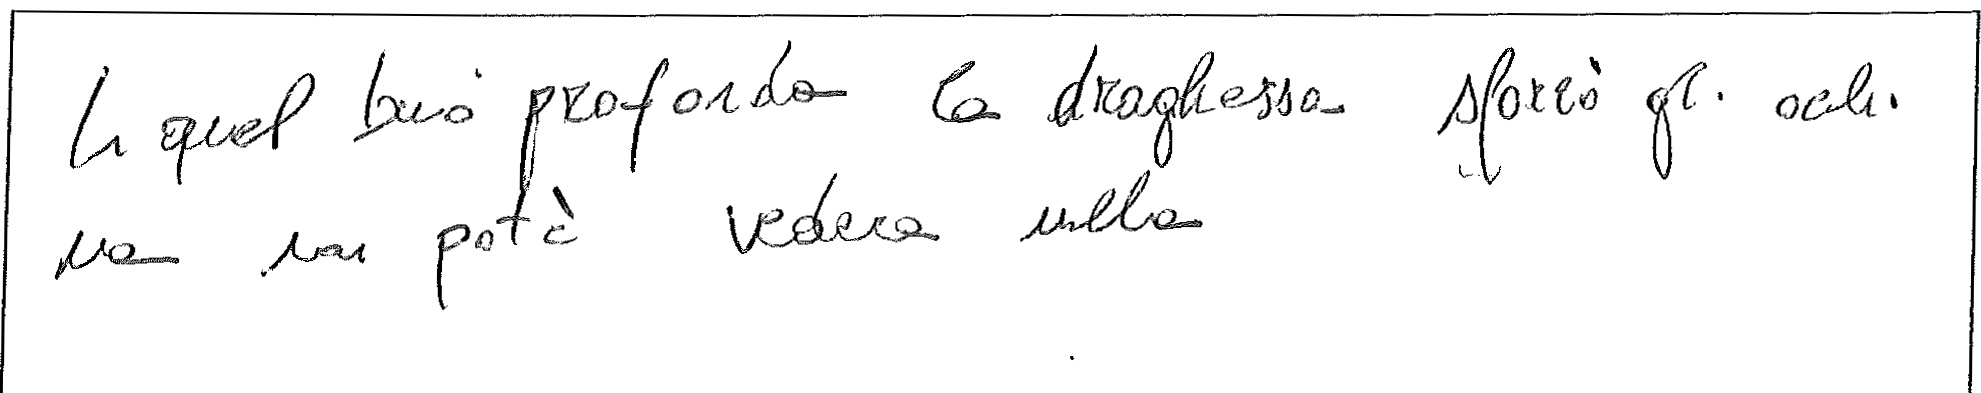 In quel buio profondo la draghessa sforzò gli occhi
ma non poté vedere nulla